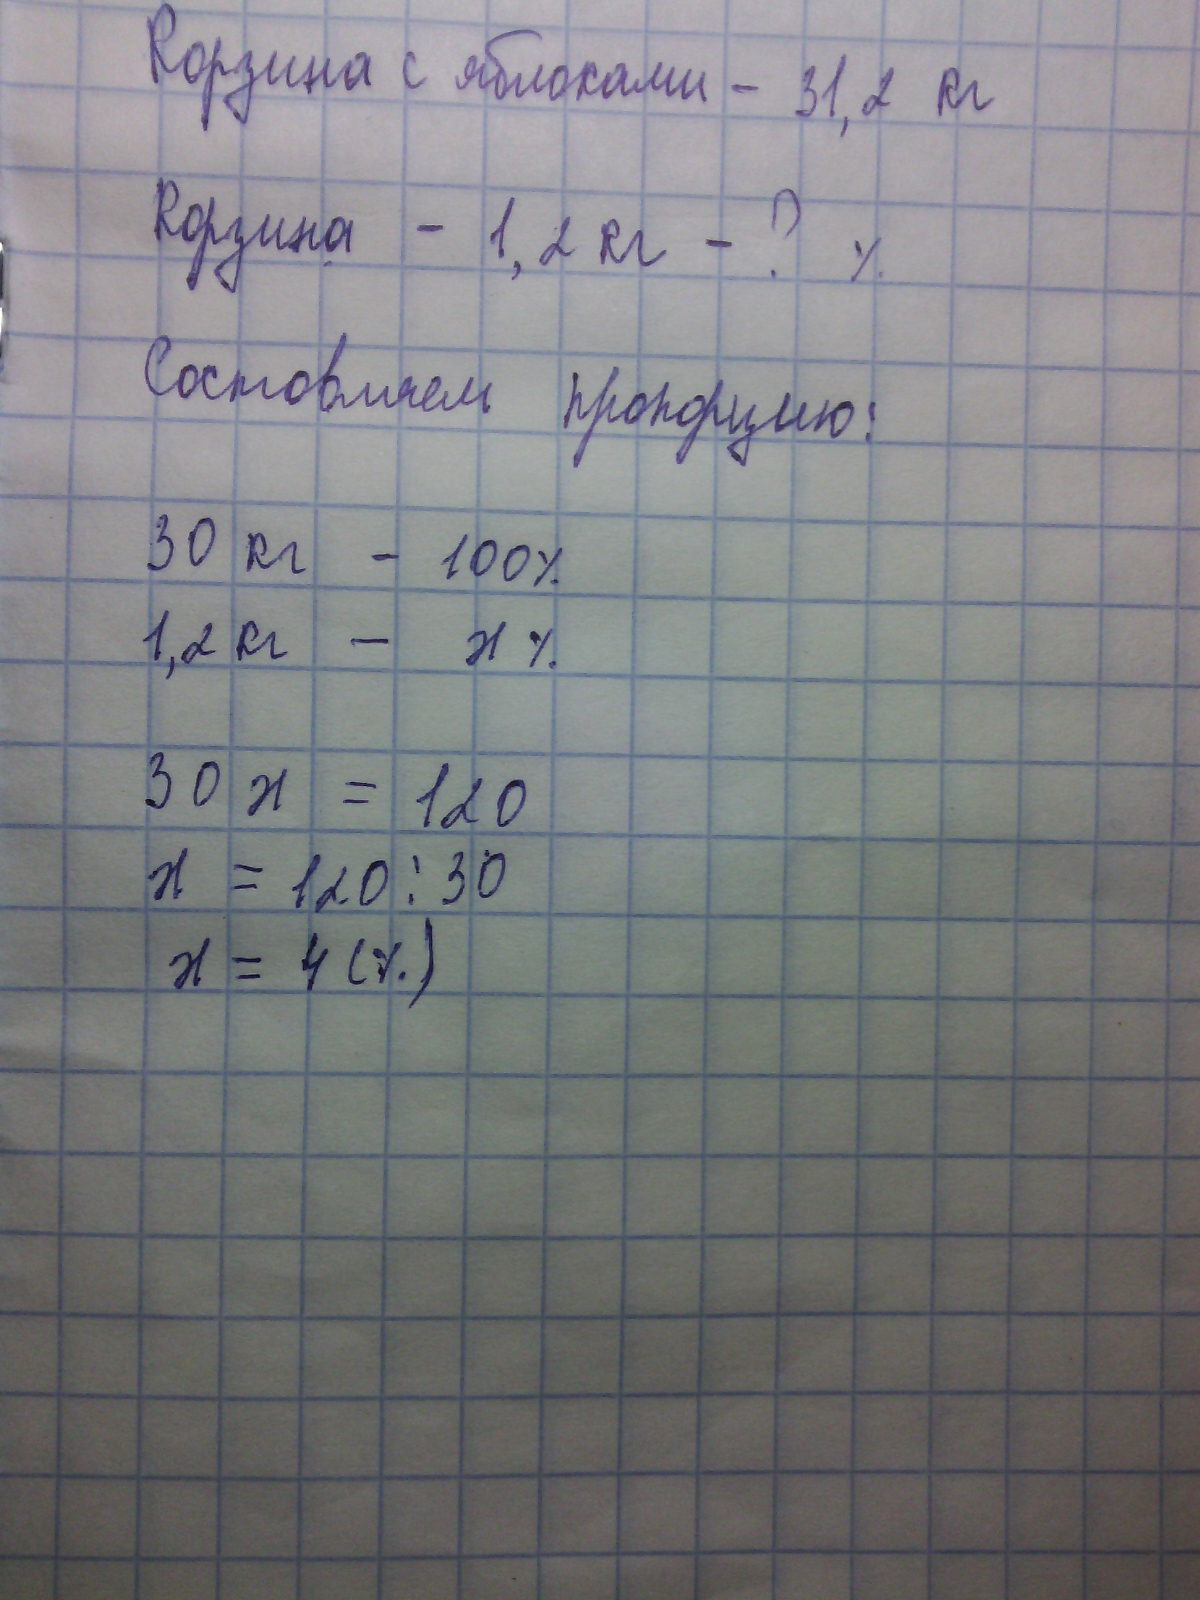 Корзина с яблоками - 31,2 кг
Корзина - 1,2 кг - ? %
Составляем пропорцию:
30 кг - 100%
1,2 кг - x %
30 x = 120
x = 120 : 30
x = 4 (%)